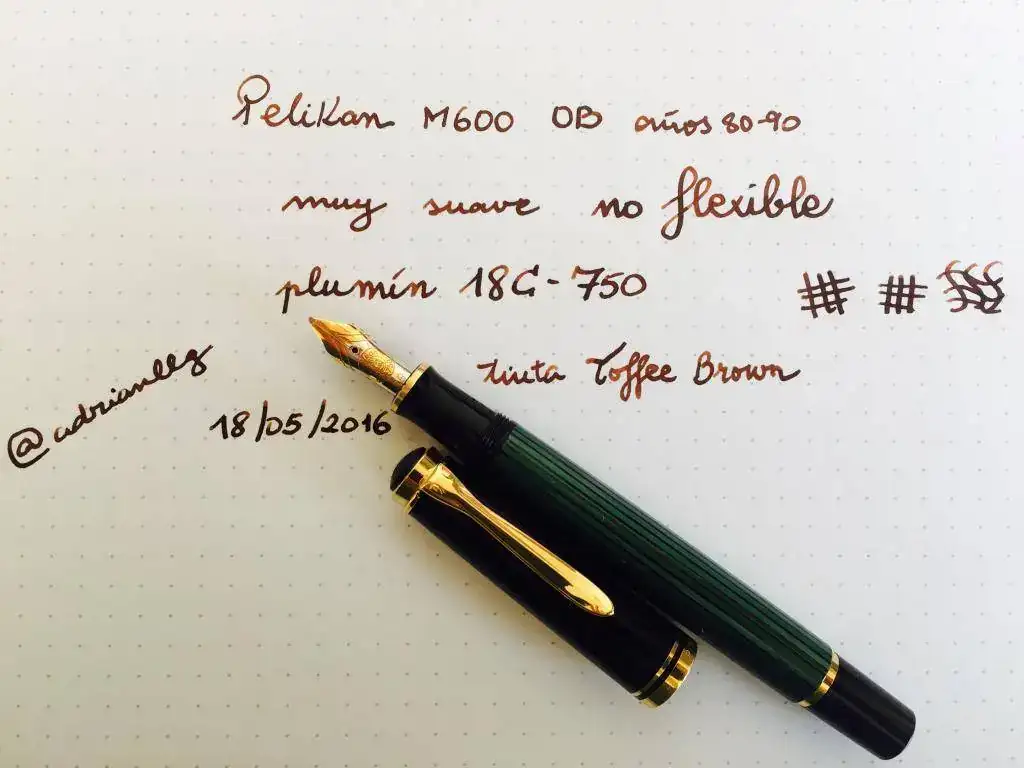 Pelikan M600 OB años 80-90
muy suave no flexible
plumín 18C-750
tinta Toffee Brown
@adrianllg
18/05/2016